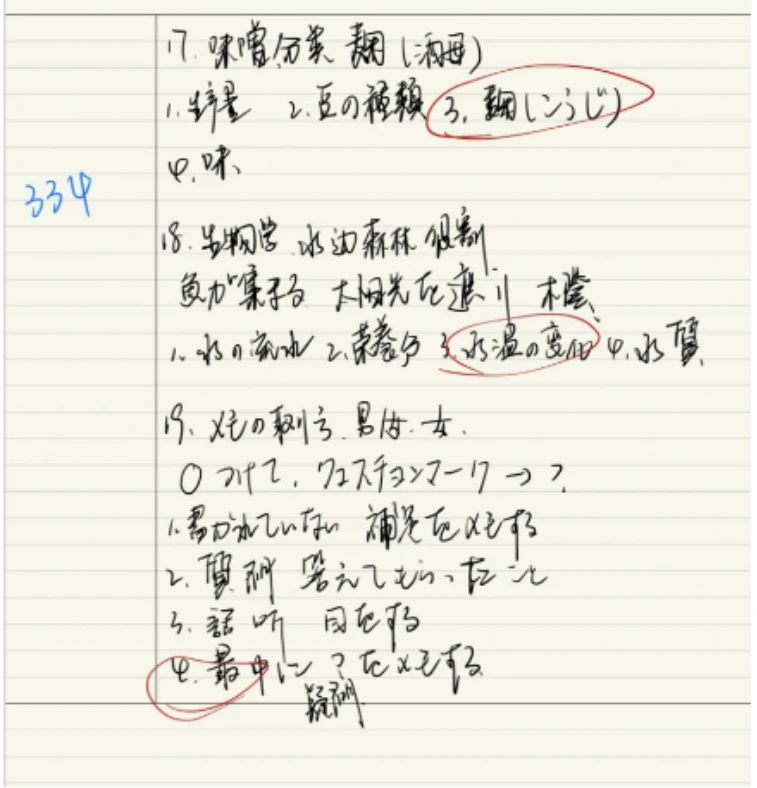 17. 味噌分类 麹(酒母)
1. 2. 豆の種類 3. 麹(こうじ)
4. 味
334
18. 生物学 水边森林 役割
魚が集まる 太阳光を遮り 木
1. 水の流れ 2. 栄養分 3. 水温の変化 4. 水質
19. メモの取り方. 男は. 女.
○つけて. クエスチョンマーク → ?
1. 書かれていない 補足をメモする
2. 質問 答えてもらったこと
3. 話 听 目をする
4. 最中に ? をメモする
疑問